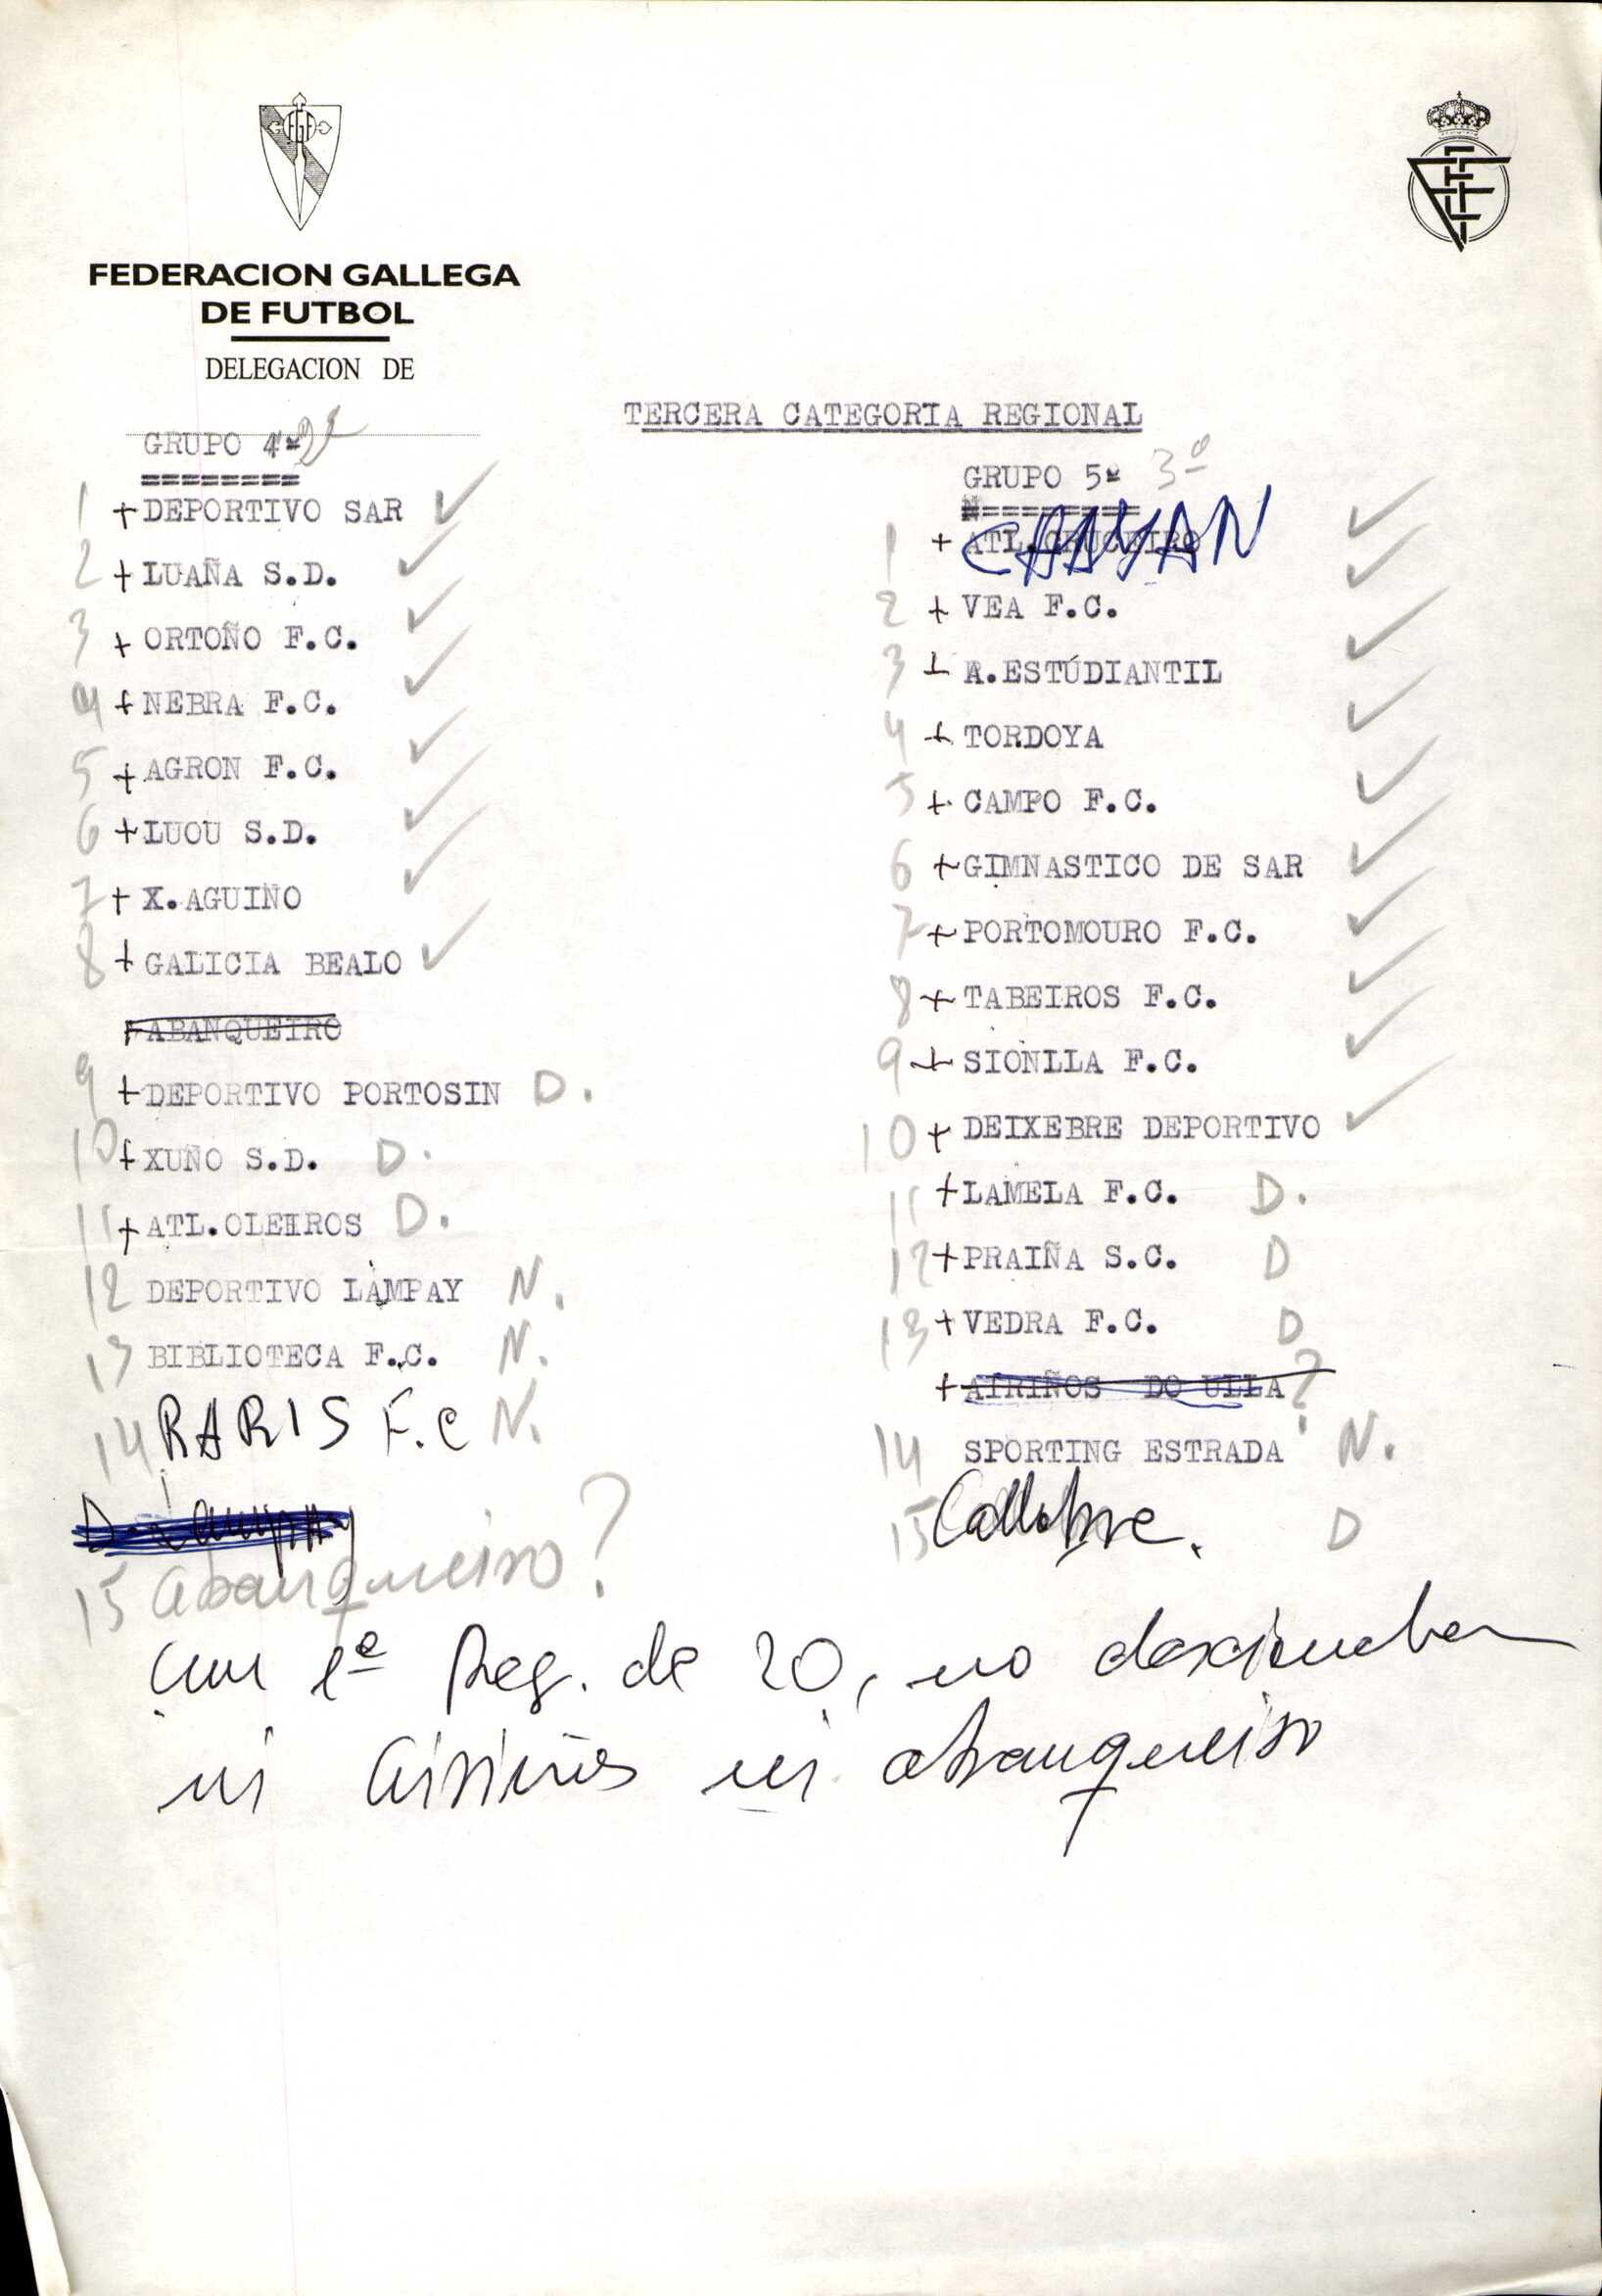 FEDERACION GALLEGA
DE FUTBOL
DELEGACION DE
TERCERA CATEGORIA REGIONAL
GRUPO 4º 2º
========
1 + DEPORTIVO SAR ✓
2 + LUAÑA S.D. ✓
3 + ORTOÑO F.C. ✓
4 + NEBRA F.C. ✓
5 + AGRON F.C. ✓
6 + LUOU S.D. ✓
7 + X.AGUIÑO ✓
8 + GALICIA BEALO ✓
+ ABANQUEIRO
9 + DEPORTIVO PORTOSIN D.
10 + XUÑO S.D. D.
11 + ATL.OLEIROS D.
12 DEPORTIVO LAMPAY N.
13 BIBLIOTECA F.C. N.
14 RARIS F.C N.
15 abanqueiro?
GRUPO 5º 3º
=========
1 + ATL.CRUCEIRO CHAYAN ✓
2 + VEA F.C. ✓
3 + A.ESTUDIANTIL ✓
4 + TORDOYA ✓
5 + CAMPO F.C. ✓
6 + GIMNASTICO DE SAR ✓
7 + PORTOMOURO F.C. ✓
8 + TABEIROS F.C. ✓
9 + SIONLLA F.C. ✓
10 + DEIXEBRE DEPORTIVO ✓
11 + LAMELA F.C. D.
12 + PRAIÑA S.C. D
13 + VEDRA F.C. D
+ AIRIÑOS DO ULLA ?
14 SPORTING ESTRADA N.
15 Callobre. D
Con 1ª Reg. de 20, no descienden
ni Airiños ni abanqueiro